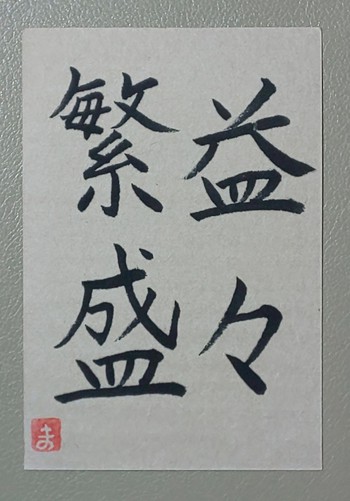 益々
繁盛
ま